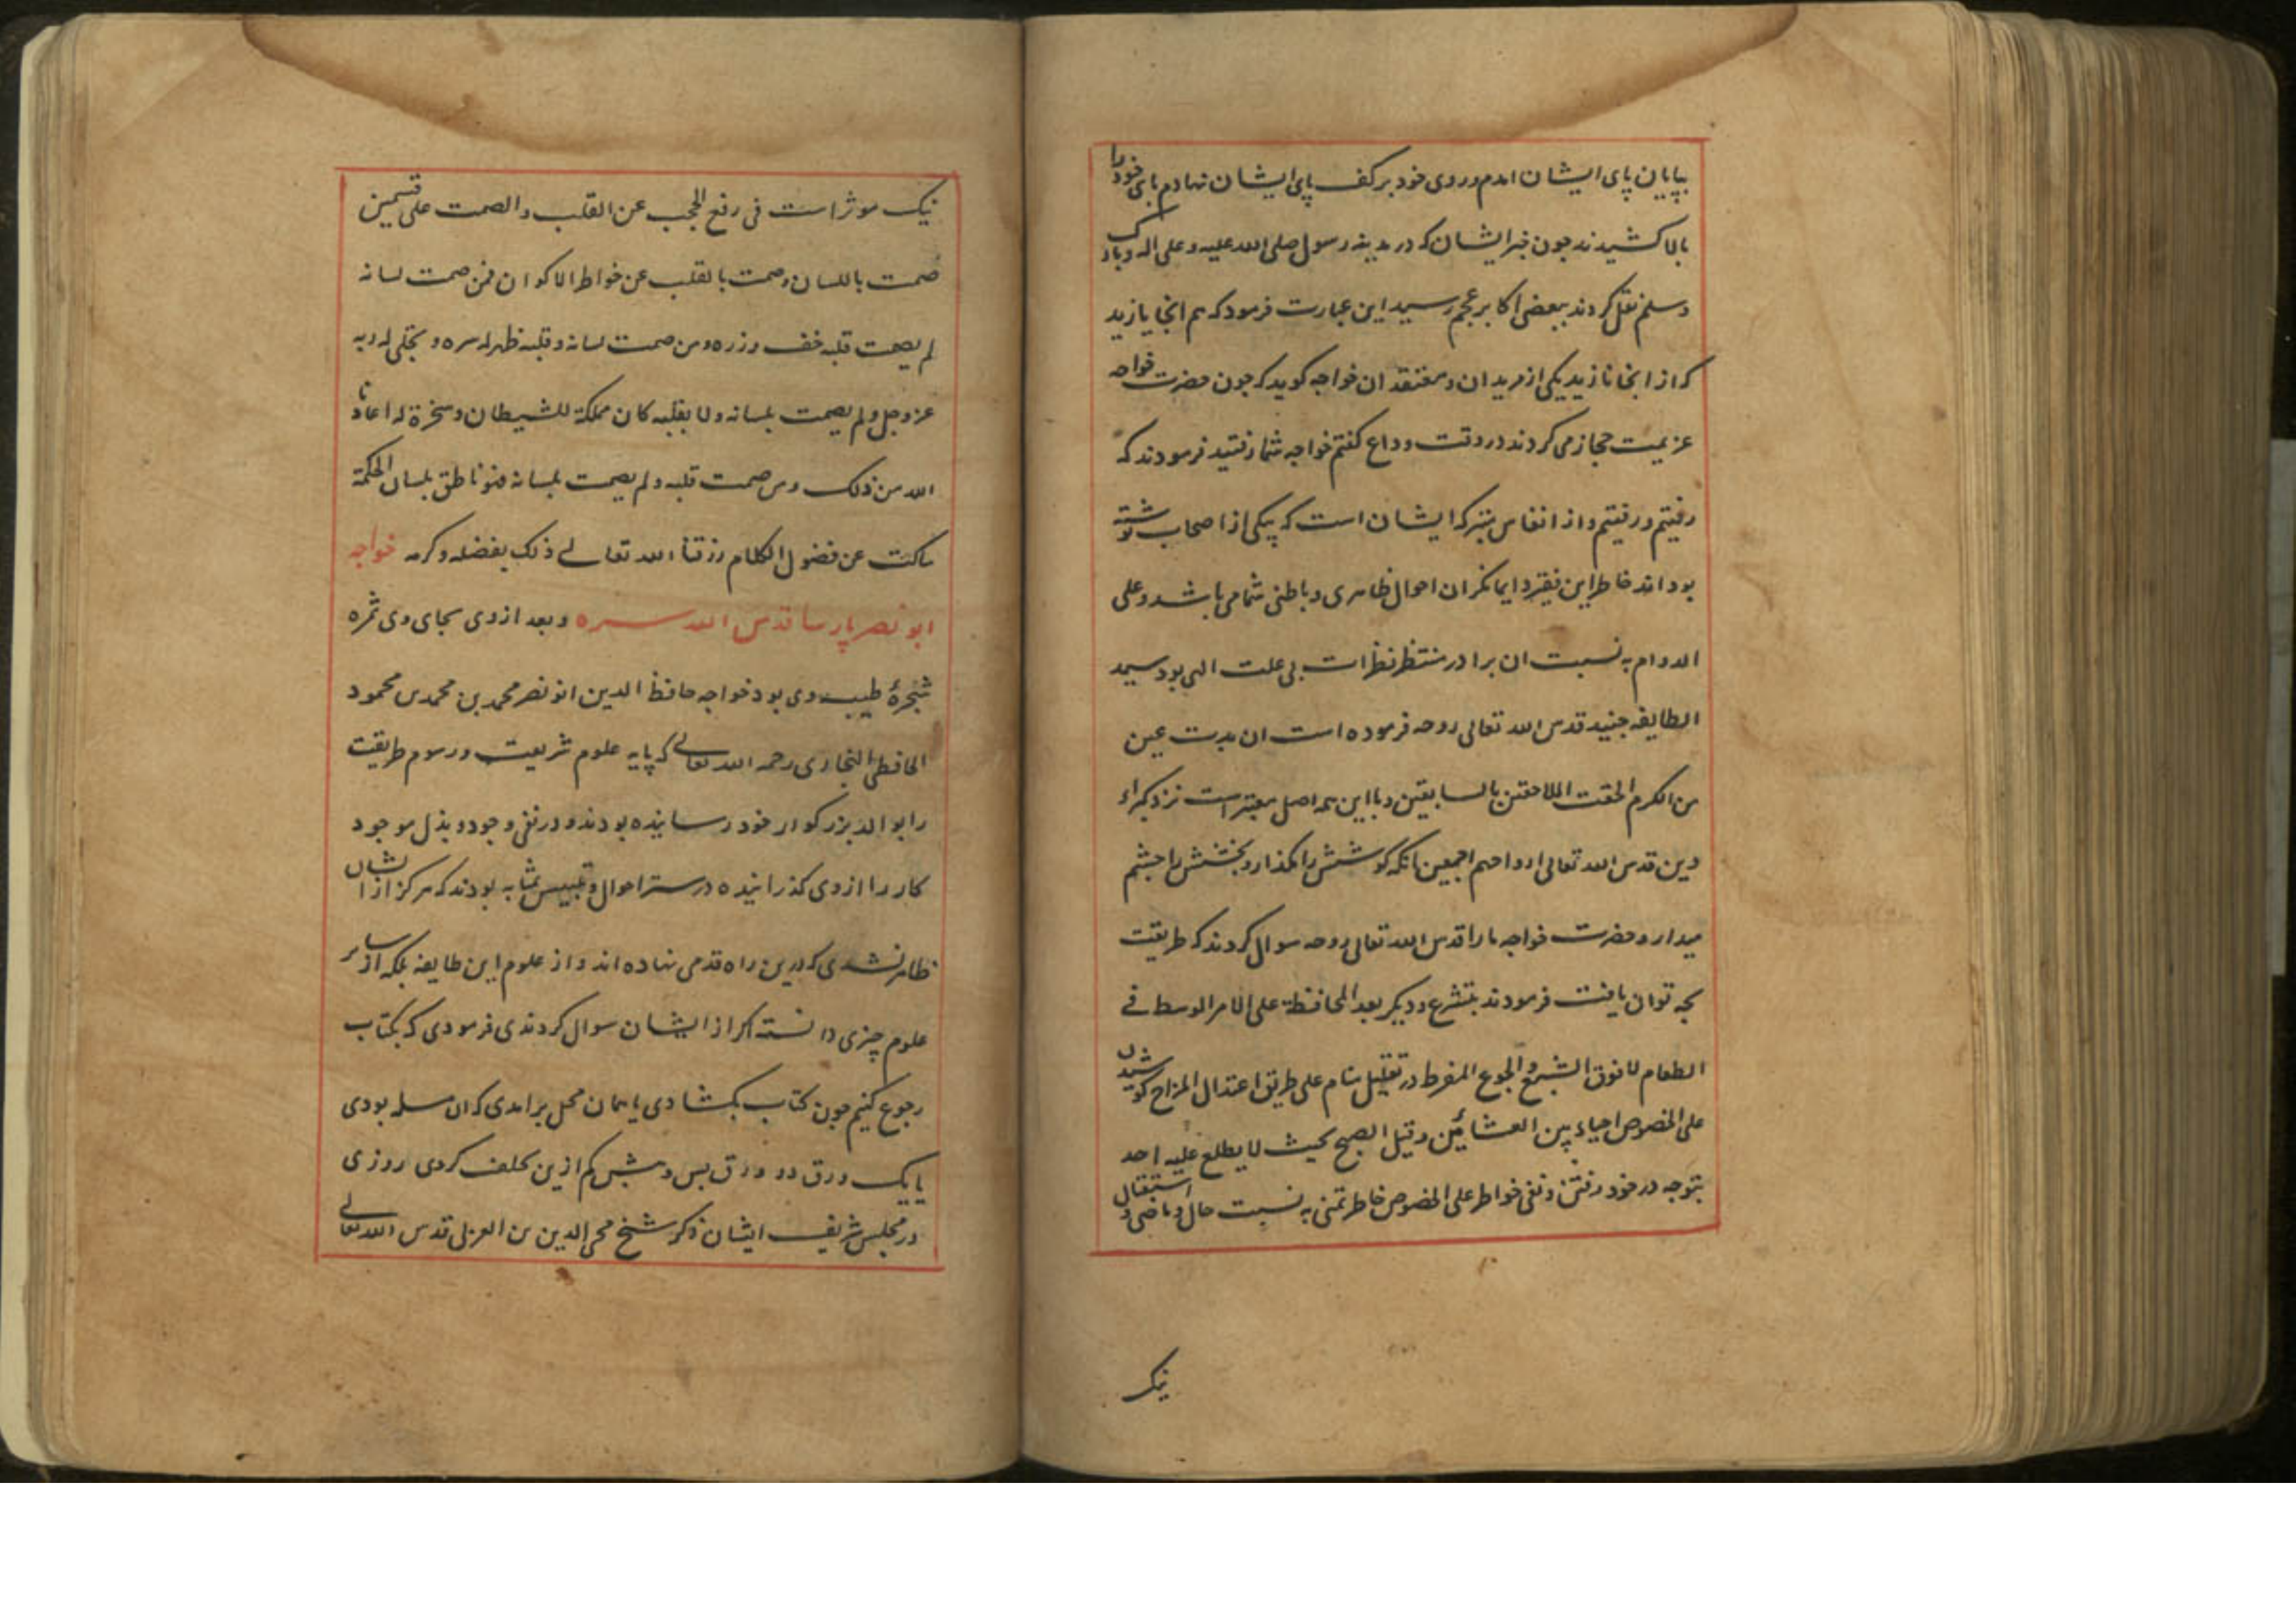 بپایان پای ایشان امدم و روی خود بر کف پای ایشان نهادم پای خود را
بالا کشیدند جون خبر ایشان که در مدینه رسول صلی الله علیه و علی اله وبارک
وسلم نقل کردند ببعضی اکابر عجم رسید این عبارت فرمود که هم انجا یازید
که از انجا نازید یکی از مریدان و معتقدان خواجه کوید که جون حضرت خواجه
عزیمت حجاز می کردند در وقت وداع کفتم خواجه شما رفتید فرمودند که
رفتیم و رفتیم و از انفاس متبرکه ایشان است که بیکی از اصحاب نوشته
بوداند خاطر این فقیر دایما نکران احوال ظاهری و باطنی شما می باشد و علی
الدوام به نسبت ان برادر منتظر نظرات بی علت الهی بود سید
الطایفه جنید قدس الله تعالی روحه فرموده است ان بدت عین
من الکرم الحقت اللاحقین بالسابقین و با این همه اصل معتبر است نزد کبراء
دین قدس الله تعالی ارواحهم اجمعین انکه کوشش را نکذارد و بخشش را جشم
میدارد و حضرت خواجه ما را قدس الله تعالی روحه سوال کردند که طریقت
بجه توان یافت فرمودند بتشرع و دیکر بعد المحافظة علی الامر الوسط فی
الطعام لا فوق الشبع و الجوع المفرط در تقلیل منام علی طریق اعتدال المزاج کوشیدن
علی الخصوص احیاء بین العشائین و قبل الصبح بحیث لا یطلع علیه احد
بتوجه در خود رفتن و نفی خواطر علی الخصوص خاطر تمنی به نسبت حال و ماضی و استقبال
نیک
نیک موثر است فی رفع الحجب عن القلب و الصمت علی قسمین
صمت باللسان و صمت بالقلب عن خواطر الاکوان فمن صمت لسانه
لم یصمت قلبه خف وزره و من صمت لسانه و قلبه ظهر له سره و تجلی له ربه
عز وجل و لم یصمت بلسانه و لا بقلبه کان مملکة للشیطان و سخرة له اعاذنا
الله من ذلک و من صمت قلبه و لم یصمت بلسانه فهو ناطق بلسان الحکمة
ساکت عن فضول الکلام رزقنا الله تعالی ذلک بفضله و کرمه خواجه
ابو نصر پارسا قدس الله سره و بعد از وی بجای وی ثمره
شجرهٔ طیبه وی بود خواجه حافظ الدین ابو نصر محمد بن محمد بن محمود
الحافظی البخاری رحمه الله تعالی که پایه علوم شریعت و رسوم طریقت
را بوالد بزرکوار خود رسانیده بودند و در نفی وجود و بذل موجود
کار را از وی کذرانیده در ستر احوال و تلبیس بمثابه بودند که هرکز از ایشان
ظاهر نشدی که درین راه قدمی نهاده اند و از علوم این طایفه بلکه از سایر
علوم چیزی دانسته اکر از ایشان سوال کردندی فرمودی که بکتاب
رجوع کنیم جون کتاب بکشادی یا همان محل برامدی که ان مسله بودی
یا یک ورق دو ورق پس و پیش کم ازین تخلف کردی روزی
در مجلس شریف ایشان ذکر شیخ محی الدین بن العربی قدس الله تعالی